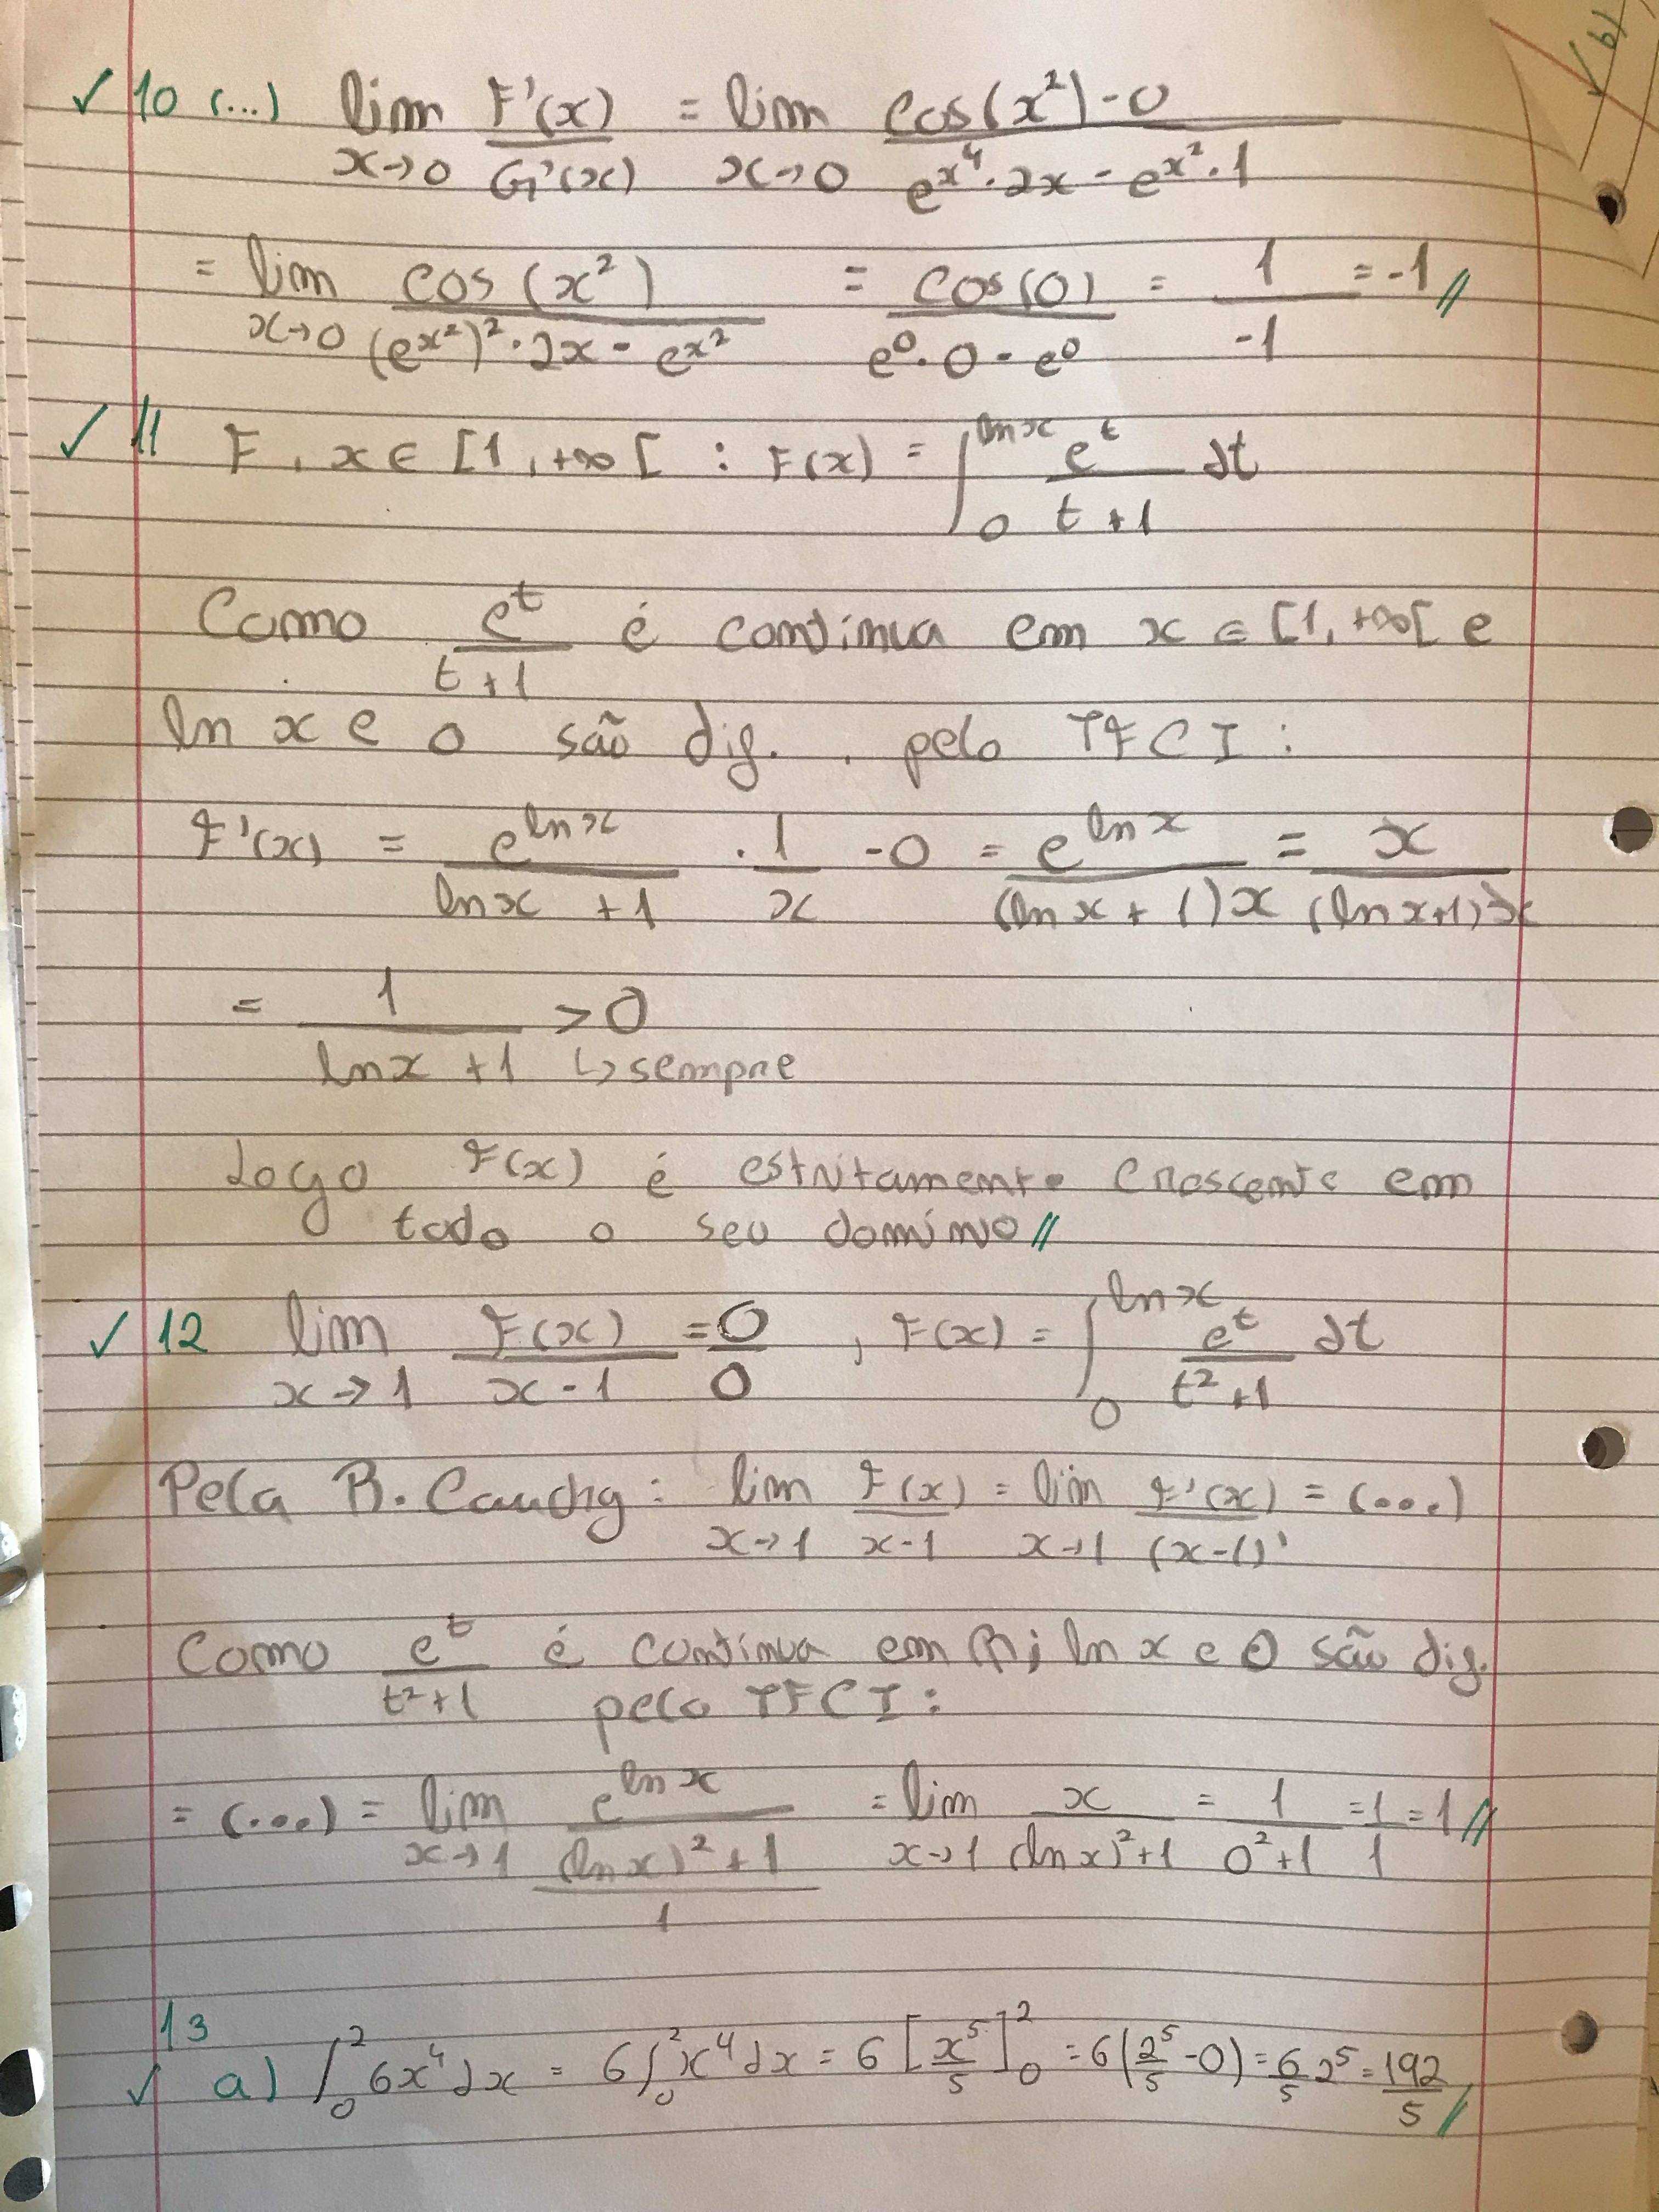 b)
✓ 10 (...) lim x→0 F'(x)/G'(x) = lim x→0 (cos(x²) - 0)/(e^x⁴ · 2x - e^x² · 1)
= lim x→0 cos(x²)/((e^x²)² · 2x - e^x²) = cos(0)/(e⁰ · 0 - e⁰) = 1/-1 = -1 //
✓ 11 F, x ∈ [1, +∞[ : F(x) = ∫₀^ln x e^t/(t+1) dt
Como e^t/(t+1) é contínua em x ∈ [1, +∞[ e
ln x e 0 são dif., pelo TFCI:
F'(x) = e^ln x/(ln x + 1) · 1/x - 0 = e^ln x/((ln x + 1)x) = x/((ln x+1)x)
= 1/(ln x + 1) > 0
↳ sempre
Logo F(x) é estritamente crescente em
todo o seu domínio //
✓ 12 lim x→1 F(x)/(x-1) = 0/0 , F(x) = ∫₀^ln x e^t/(t²+1) dt
Pela R. Cauchy: lim x→1 F(x)/(x-1) = lim x→1 F'(x)/(x-1)' = (...)
Como e^t/(t²+1) é contínua em R; ln x e 0 são dif.
pelo TFCI:
= (...) = lim x→1 (e^ln x/((ln x)²+1))/1 = lim x→1 x/((ln x)²+1) = 1/(0²+1) = 1/1 = 1 //
13
✓ a) ∫₀² 6x⁴ dx = 6∫₀² x⁴ dx = 6 [x⁵/5]₀² = 6(2⁵/5 - 0) = 6/5 2⁵ = 192/5 //